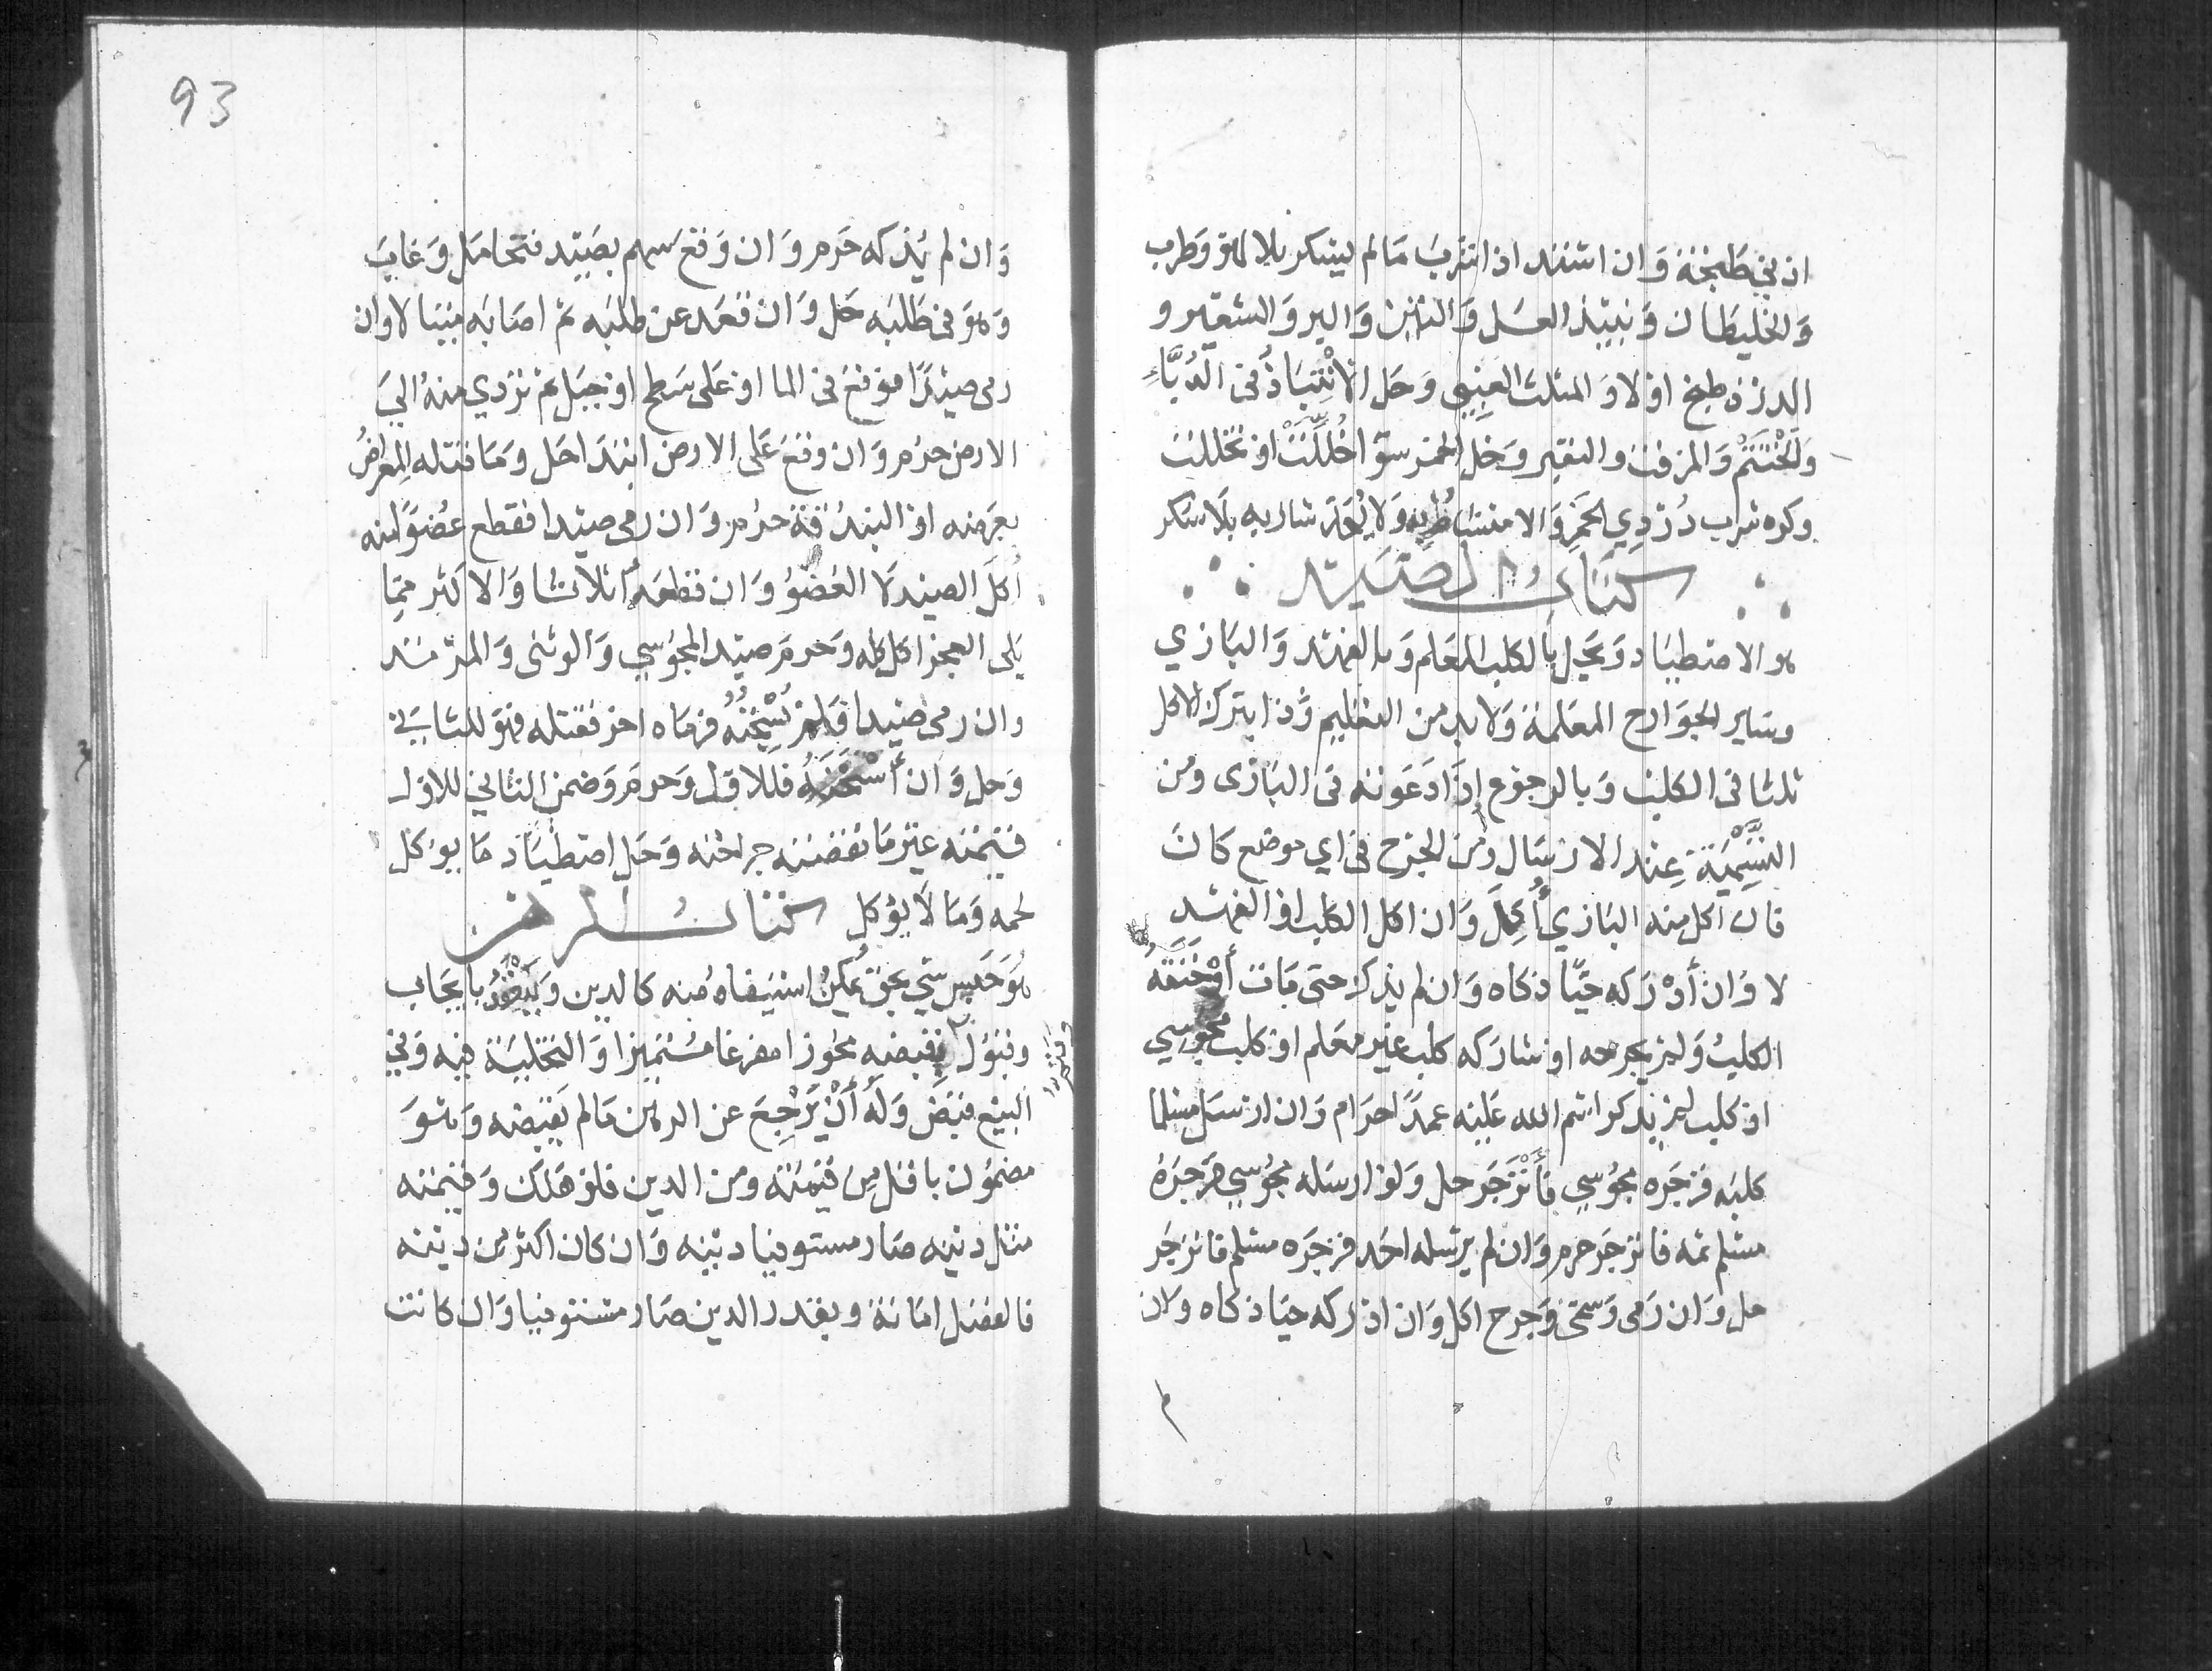 ان نبي طبخة وان اشتد اذا شرب مالم يسكر بلا لهو وطرب
والخليطان ونبيذ العسل والتين والبر والشعير و
الذرة طبخ اولا والمثلث العنبي وحل الانتباذ في الدباء
والحنتم والمزفت والنقير وخل الخمر سوا خللت او تخللت
وكره شرب دردي الخمر والامتشاط به ولا يحد شاربه بلا سكر
كتاب الصيد
هو الاصطياد ويحل بالكلب المعلم وبالفهد والبازي
وساير الجوارح المعلمة ولا بد من التعليم وذا بترك الاكل
ثلثا في الكلب وبالرجوع اذا دعوته في البازى ومن
التسمية عند الارسال ومن الجرح في اي موضع كان
فان اكل منه البازي أكل وان اكل الكلب او الفهد
لا وان أدركه حيًا ذكاه وان لم يذكه حتى مات أو خنقه
الكلب ولم يجرحه او شاركه كلب غير معلم او كلب مجوسي
او كلب لم يذكر اسم الله عليه عمدًا حرام وان ارسل مسلما
كلبه فزجره مجوسي فأنزجر حل ولو ارسله مجوسي فزجره
مسلم ثمه فانزجر حرم وان لم يرسله احد فزجره مسلم فانزجر
حل وان رمى وسمى وجرح اكل وان ادركه حيا ذكاه وان
93
وان لم يذكه حرم وان وقع سهم بصيد فتحامل وغايب
وهو في طلبه حل وان قعد عن طلبه ثم اصابه ميتا لا وان
رمى صيدًا فوقع في الما او على سطح او جبل ثم تردي منه الي
الارض حرم وان وقع على الارض ابتدا حل وما قتله المعراض
بعرضه او البندقة حرم وان رمى صيدا فقطع عضوًا منه
أكل الصيد لا العضو وان قطعه أثلاثا والاكثر مما
يلي العجز اكل كله وحرم صيد المجوسي والوثنى والمرتد
وان رمى صيدا فلم يثخنه فرماه اخر فقتله فهو للثاني
وحل وان أثخنه فللاول وحرم وضمن الثاني للاول
قيمته غير ما نقصته جراحته وحل اصطياد ما يوكل
لحمه وما لا يؤكل كتاب الرهن
هو حبس شي بحق يمكن استيفاه منه كالدين وينعقد بايجاب
وقبول بقبضه محوزا مفرغا متميزا والتخلية فيه وفي
البيع قبض وله أن يرجع عن الرهن مالم يقبضه وهو
مضمون باقل من قيمته ومن الدين فلو هلك وقيمته
مثل دينه صار مستوفيا دينه وان كان اكثر من دينه
فالفضل امانة وبقدر الدين صار مستوفيا وان كانت